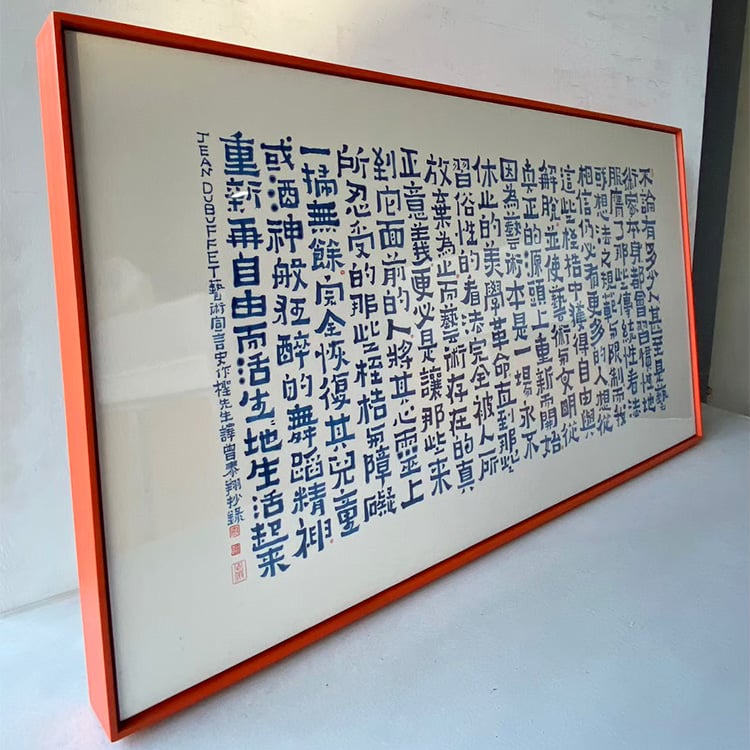 不論有多少人甚至是藝
術家本身都曾習慣性地
服膺了那些傳統性看法
或想法之規範与限制而我
相信仍必有更多的人想從
這些桎梏中獲得自由與
解脫並使藝術与文明從
真正的源頭上重新開始
因為藝術本是一場永不
休止的美學革命直到那些
習俗性的看法完全被人所
放棄為止而藝術存在的真
正意義更必是讓那些來
到它面前的人將其心靈上
所忍受的那些桎梏与障礙
一掃無餘。完全恢復其兒童
或酒神般狂醉的舞蹈精神
重新再自由而活生〻地生活起来
JEAN DUBUFFET藝術宣言史作檉先生譯曾泰翔抄錄